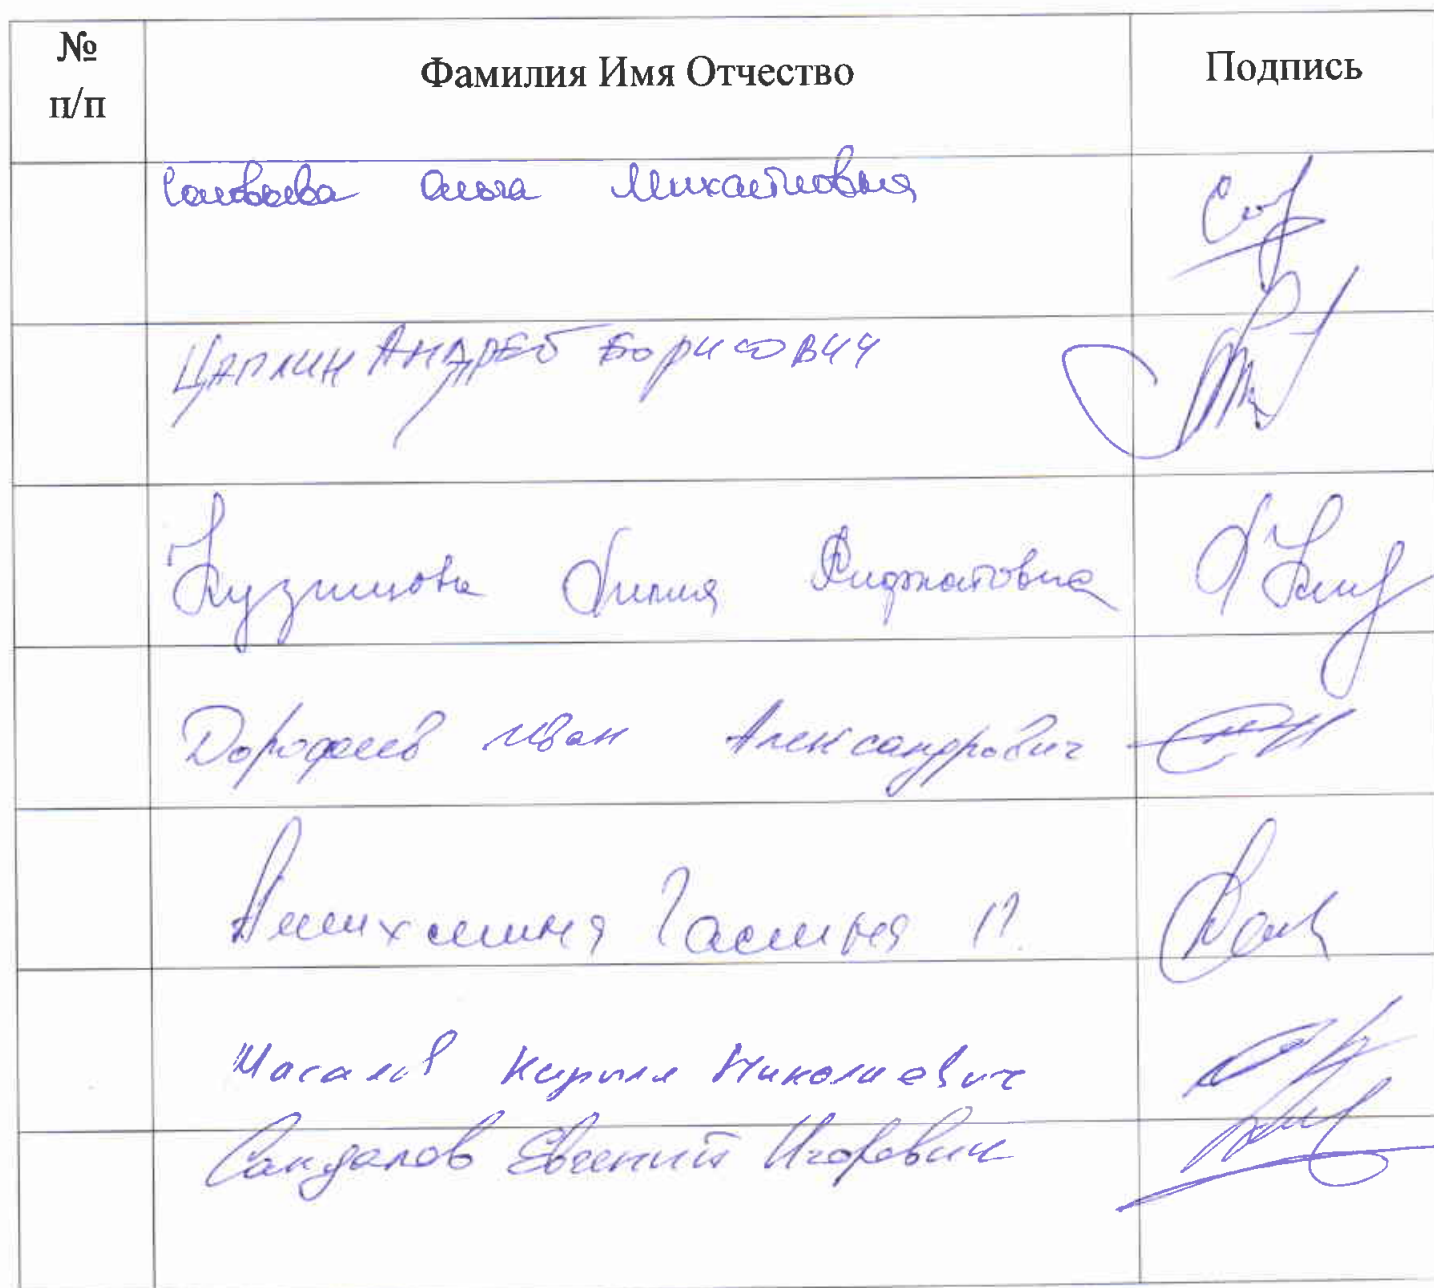 № п/п
Фамилия Имя Отчество
Подпись
Соловьева Ольга Михайловна
Цаплин Андрей Борисович
Кузнецова Лилия
Дорофеев Иван Александрович
П.
Масалов Кирилл Николаевич
Сандалов Евгений Игоревич